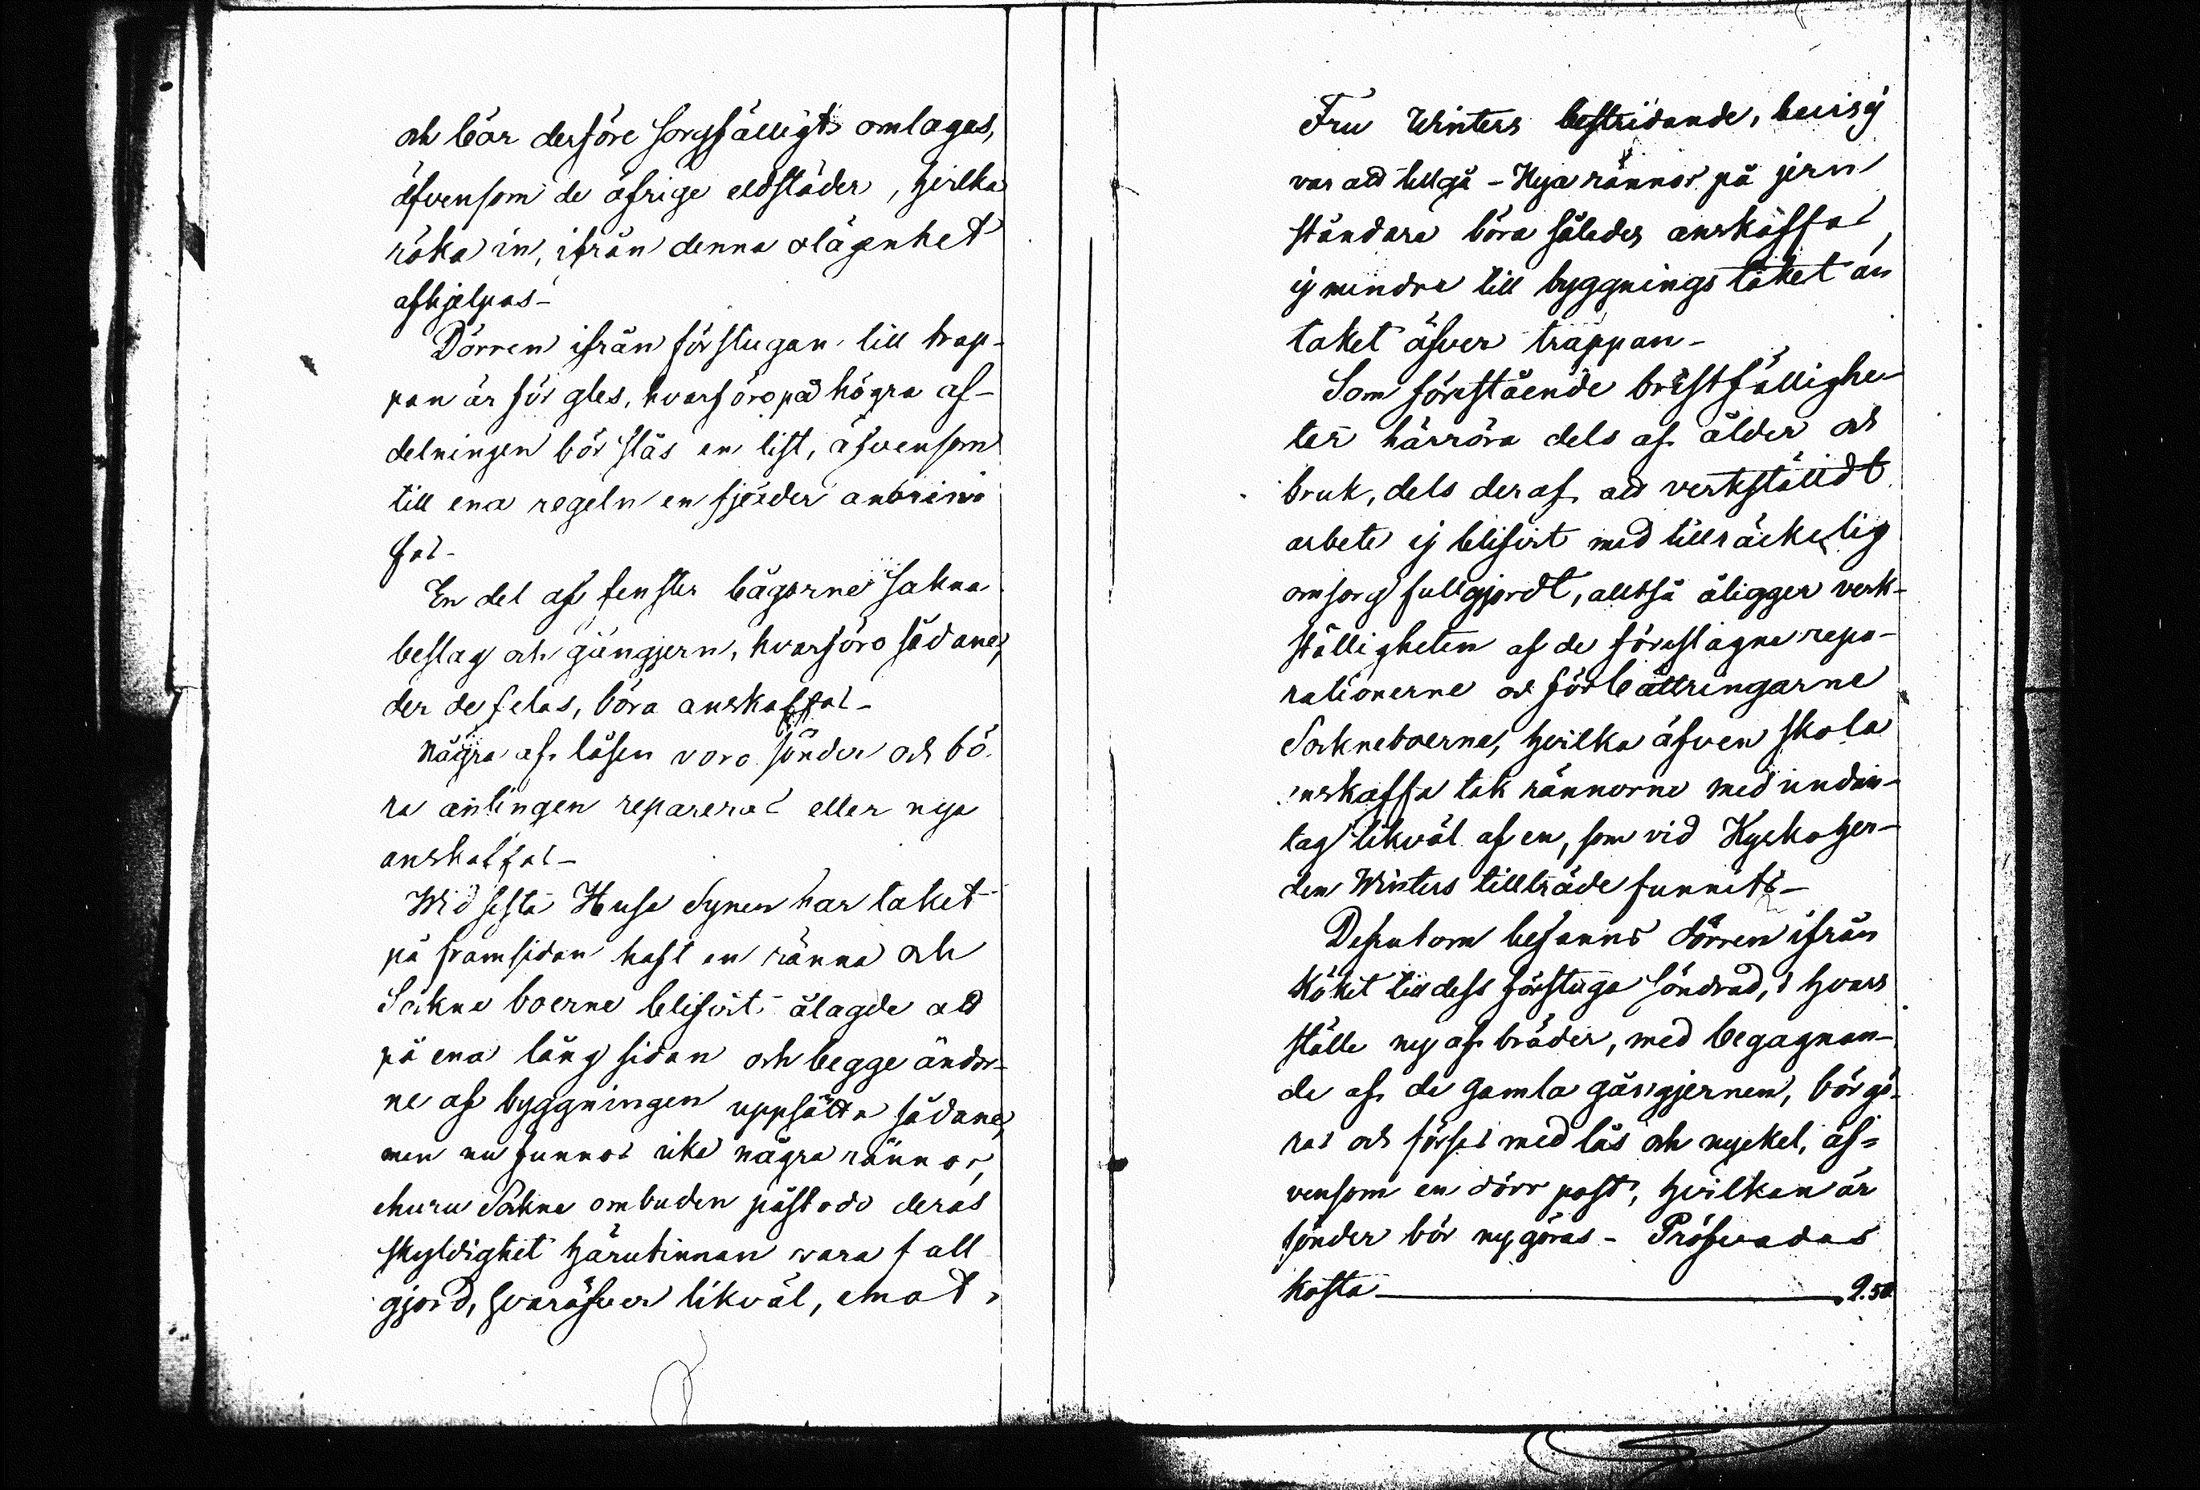 och bör derföre sorgfälligt omlagas,
äfvensom de öfrige eldstäder, hvilka
röka in, ifrån denna olägenhet
afhjelpas-
Dörren ifrån förstugan till trap-
pan är för gles, hvarföre på högra af-
delningen bör slås en list, äfvensom
till ena regeln en fjeder anbrin-
gas-
En del af fenster bågarne sakna
beslag och gångjern, hvarföre sådane,
der de felas, böra anskaffas-
Några af låsen voro sönder och bö-
ra antingen repareras eller nya
anskaffas-
Wid sista Huse Synen har taket
på framsidan haft en ränna och
Sockne boerne blifvit ålagde att
på ena lång sidan och begge ändar-
ne af byggningen uppsätta sådane,
men nu funnos icke några rännor,
ehuru Sockne ombuden påstodo deras
skyldighet härutinnan vara full
gjord, hvaröfver likväl, emot
Fru Winters bestridande, bevis ej
var att tillgå - Nya rännor på jern
ståndare böra således anskaffas,
ej mindre till byggnings taket än
taket öfver trappan-
Som förestående bristfällighe-
ter härröra dels af ålder och
bruk, dels deraf att verkställdt
arbete ej blifvit med tillräckelig
omsorg fullgjordt, alltså åligger verk-
ställigheten af de föreslagne repa-
rationerne och förbättringarne
Sockneboerne, hvilka äfven skola
anskaffa tak rännorne med undan-
tag likväl af en, som vid Kyrkoher-
den Winters tillträde funnits-
Dessutom befanns dörren ifrån
Köket till dess förstuga söndrad, i hvars
ställe ny af bräder, med begagnan-
de af de gamla gångjernen, bör gö-
ras och förses med lås och nyckel, äf-
vensom en dörr post, hvilken är
sönder bör ny göras - Pröfvades
kosta 2.50